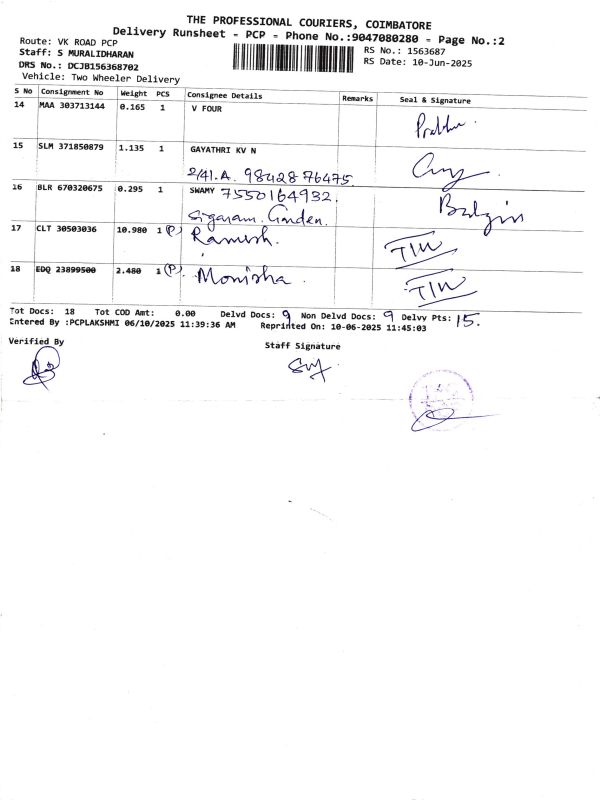 THE PROFESSIONAL COURIERS, COIMBATORE
Delivery Runsheet - PCP - Phone No.:9047080280 - Page No.:2
Route: VK ROAD PCP
RS No.: 1563687
Staff: S MURALIDHARAN
RS Date: 10-Jun-2025
DRS No.: DCJB156368702
Vehicle: Two Wheeler Delivery
S No Consignment No Weight PCS Consignee Details Remarks Seal & Signature
14 MAA 303713144 0.165 1 V FOUR
Prabhu.
15 SLM 371850879 1.135 1 GAYATHRI KV N
2/41.A. 98428 76475
16 BLR 670320675 0.295 1 SWAMY 7550164932.
Sigaram. Garden.
17 CLT 30503036 10.980 1 (P) Ramesh.
18 EDQ 23899500 2.480 1 (P). Monisha.
Tot Docs: 18 Tot COD Amt: 0.00 Delvd Docs: 9 Non Delvd Docs: 9 Delvy Pts: 15.
Entered By :PCPLAKSHMI 06/10/2025 11:39:36 AM Reprinted On: 10-06-2025 11:45:03
Verified By
Staff Signature